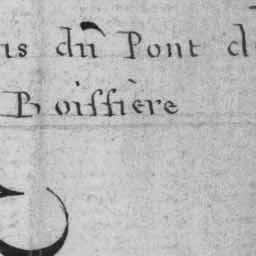 is du Pont d
Boissière